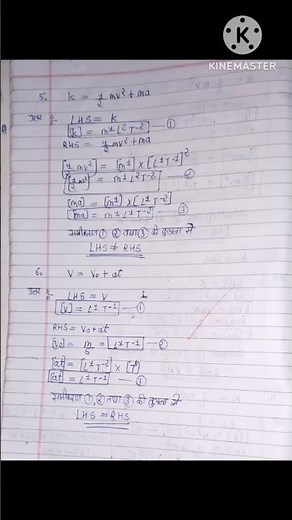 KINEMASTER
5. k = 1/2 mv² + ma
उत्तर :- LHS = k
[k] = m¹L²T⁻² —①
RHS = 1/2 mv² + ma
[1/2 mv²] = [m¹] × [L¹T⁻¹]²
[1/2 mv²] = m¹L²T⁻² —②
[ma] = [m¹] × [L¹T⁻²]
[ma] = m¹L¹T⁻² —③
समीकरण ① ② तथा ③ की तुलना से
LHS ≠ RHS
6. V = V₀ + at
उत्तर :- LHS = V
[V] = L¹T⁻¹ —①
RHS = V₀ + at
[V₀] = m/s = [L¹T⁻¹] —②
[at] = [L¹T⁻²] × [T¹]
[at] = L¹T⁻¹ —③
समीकरण ①, ② तथा ③ की तुलना से
LHS = RHS